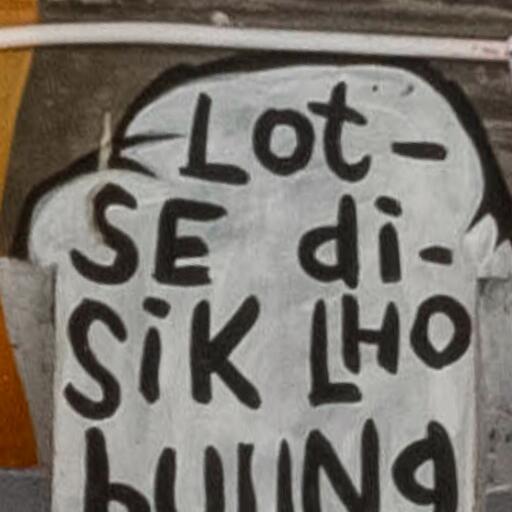 Lot-
SE di-
SiK LHO
bUUNg